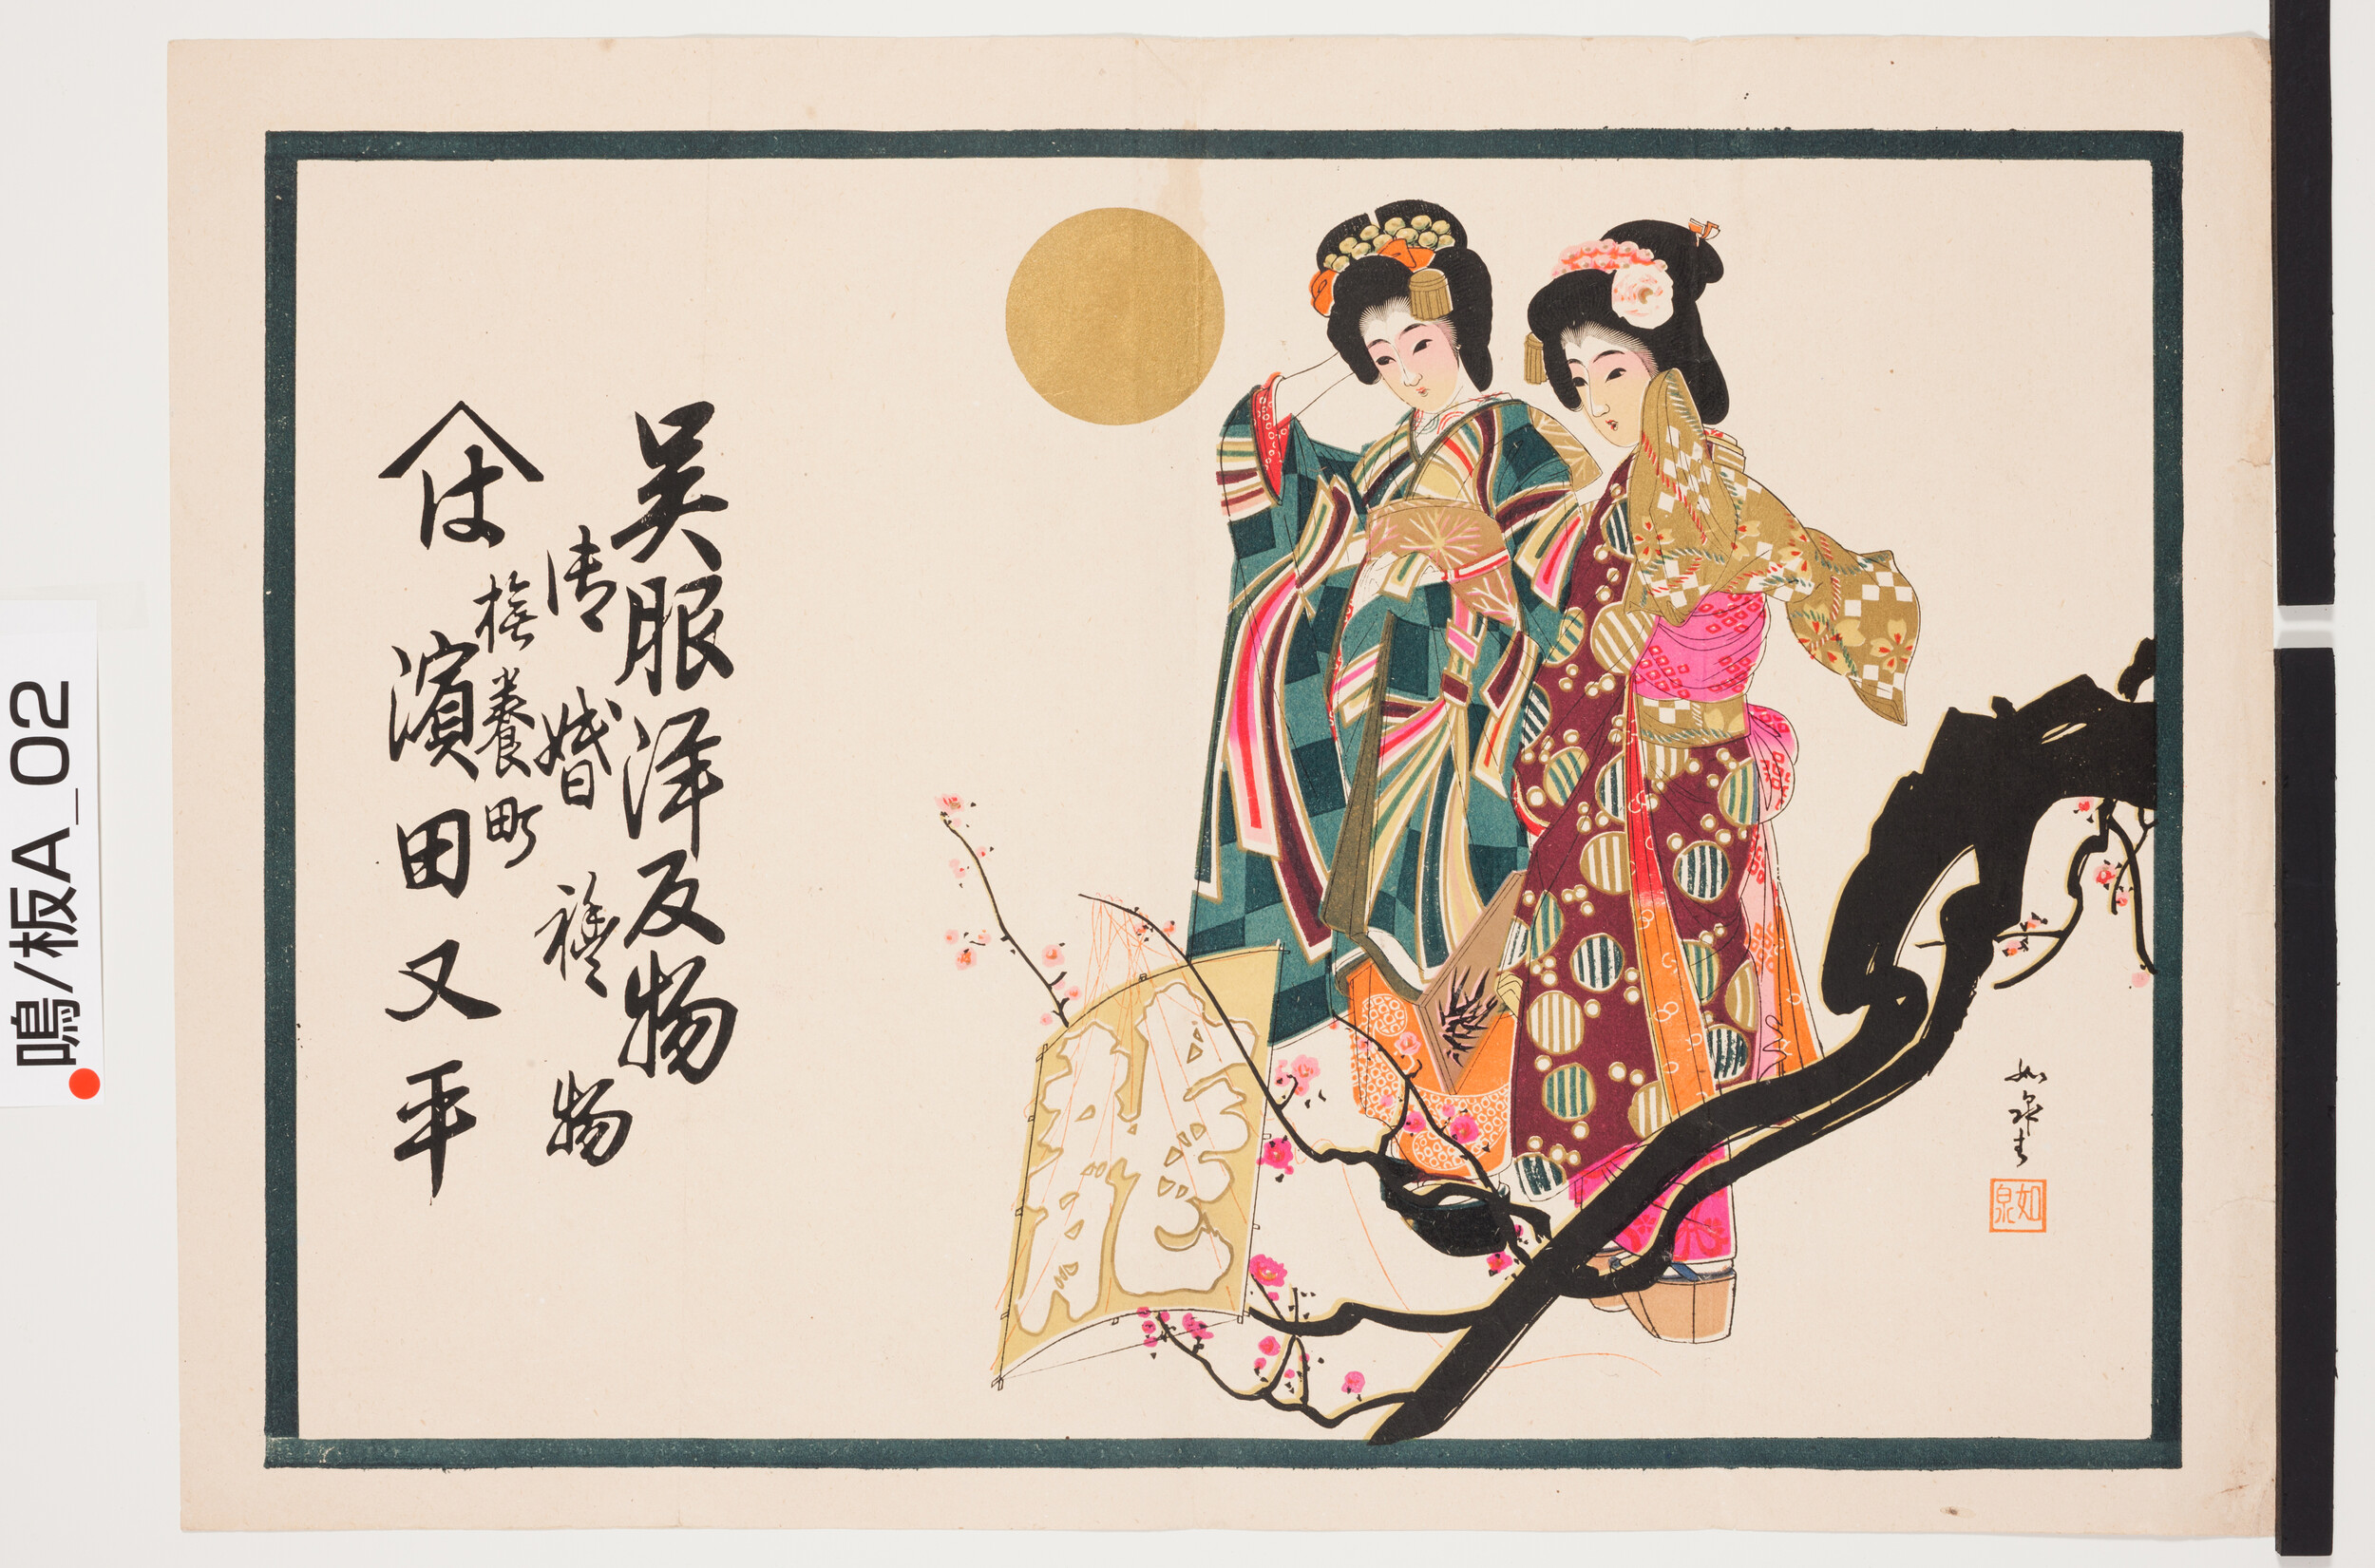 如泉
如泉
龍
呉服洋反物
御婚禮物
撫養町
は
濱田又平
鳴/板A_02